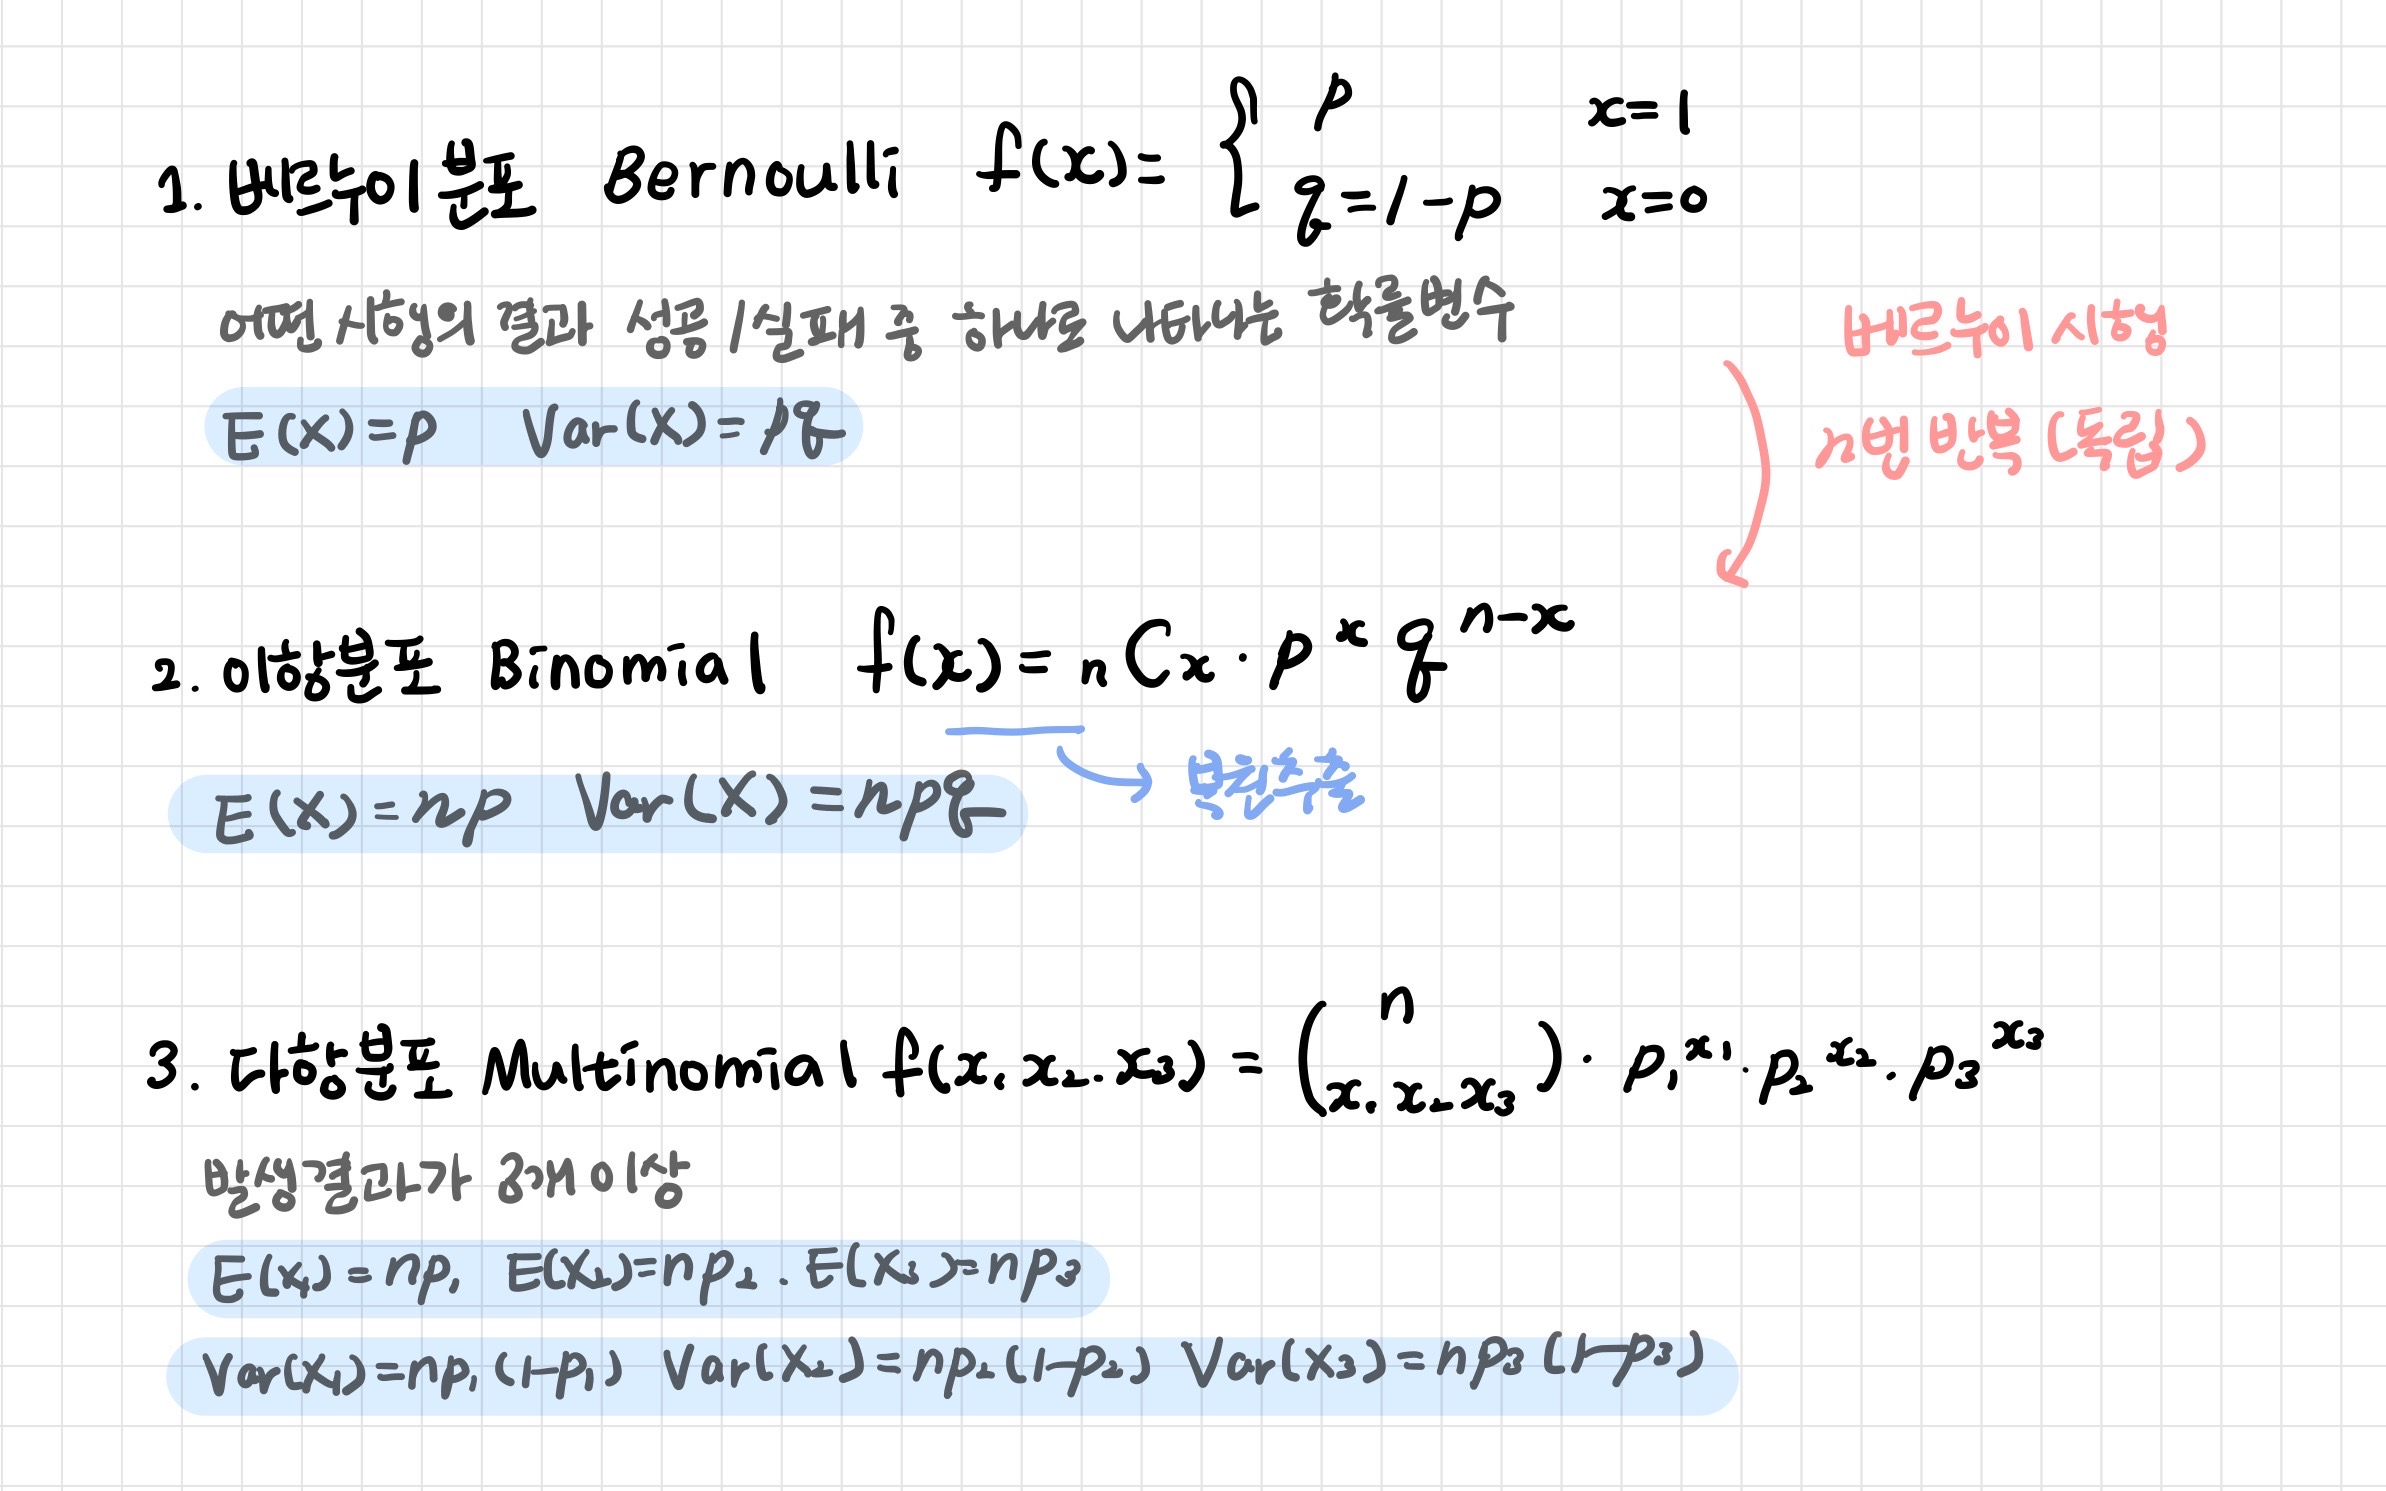 1. 베르누이 분포 Bernoulli f(x)= { p x=1
q=1-p x=0
어떤 시행의 결과 성공/실패 중 하나로 나타나는 확률변수
베르누이 시행
n번 반복 (독립)
E(X)=p Var(X)=pq
2. 이항분포 Binomial f(x)= nCx · p^x q^(n-x)
복원추출
E(X)=np Var(X)=npq
3. 다항분포 Multinomial f(x₁ x₂. x₃) = (n x₁. x₂ x₃) · p₁^x₁ · p₂^x₂ . p₃^x₃
발생결과가 3개 이상
E(X₁)=np₁ E(X₂)=np₂ . E(X₃)=np₃
Var(X₁)=np₁(1-p₁) Var(X₂)=np₂(1-p₂) Var(X₃)=np₃(1-p₃)